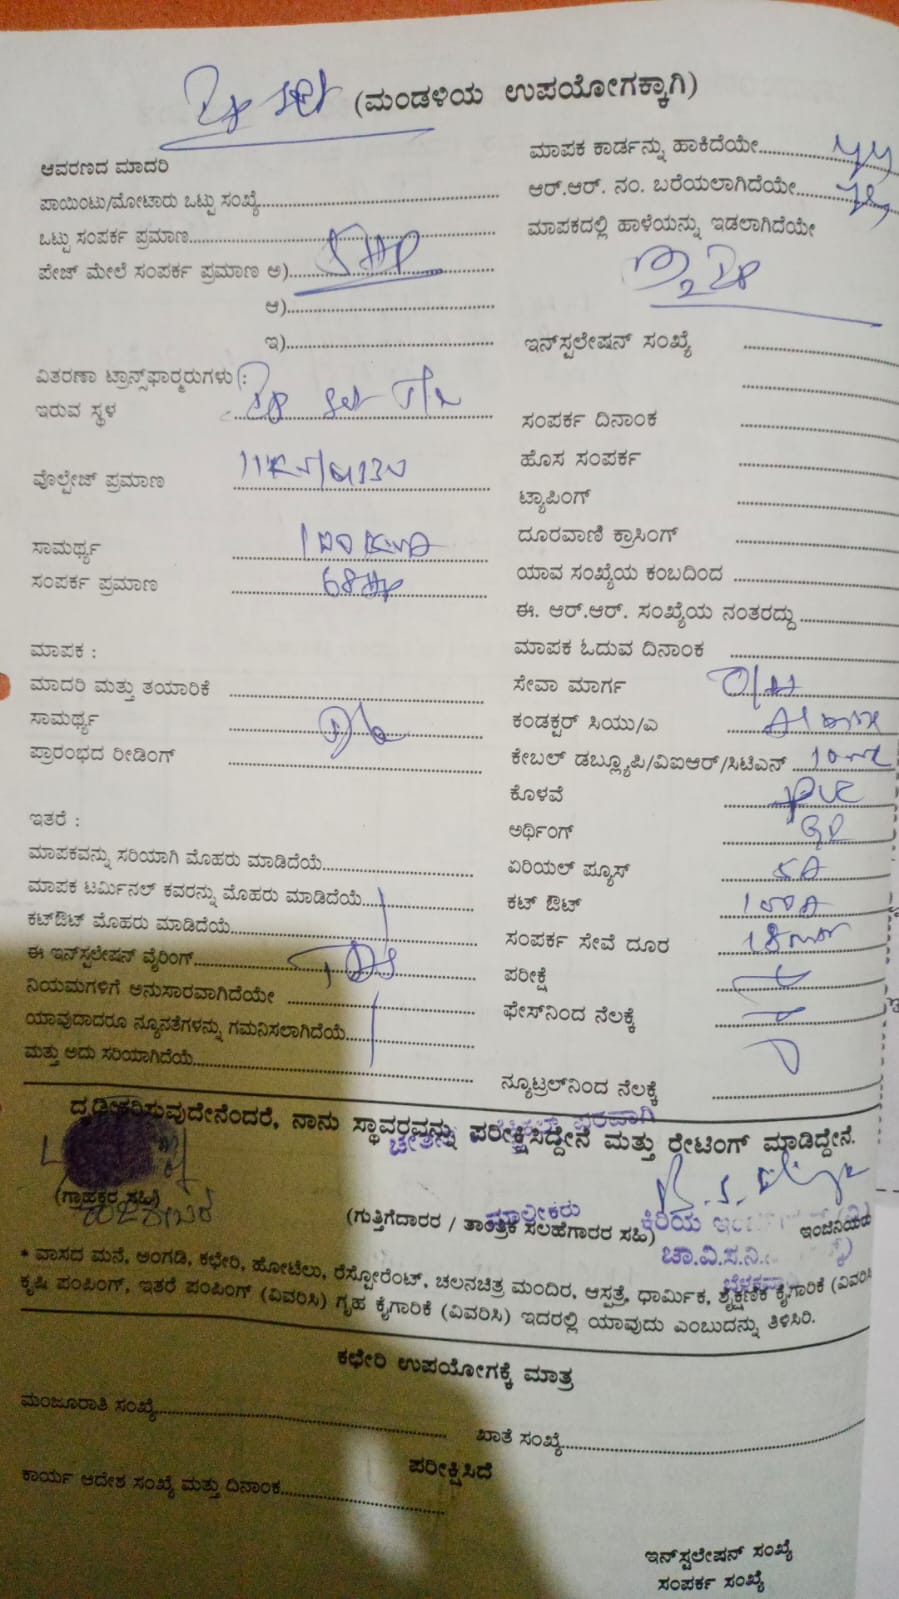 Ip set (ಮಂಡಳಿಯ ಉಪಯೋಗಕ್ಕಾಗಿ)
ಆವರಣದ ಮಾದರಿ
ಪಾಯಿಂಟು/ಮೋಟಾರು ಒಟ್ಟು ಸಂಖ್ಯೆ
ಒಟ್ಟು ಸಂಪರ್ಕ ಪ್ರಮಾಣ
ಪೇಜ್ ಮೇಲೆ ಸಂಪರ್ಕ ಪ್ರಮಾಣ ಅ) 5HP
ಆ)
ಇ)
ವಿತರಣಾ ಟ್ರಾನ್ಸ್‌ಫಾರ್‍ಮರುಗಳು :
ಇರುವ ಸ್ಥಳ Ip set T/c
ವೊಲ್ಟೇಜ್ ಪ್ರಮಾಣ
ಸಾಮರ್ಥ್ಯ 100 KVA
ಸಂಪರ್ಕ ಪ್ರಮಾಣ 68HP
ಮಾಪಕ :
ಮಾದರಿ ಮತ್ತು ತಯಾರಿಕೆ
ಸಾಮರ್ಥ್ಯ
ಪ್ರಾರಂಭದ ರೀಡಿಂಗ್
ಇತರೆ :
ಮಾಪಕವನ್ನು ಸರಿಯಾಗಿ ಮೊಹರು ಮಾಡಿದೆಯೆ
ಮಾಪಕ ಟರ್ಮಿನಲ್ ಕವರನ್ನು ಮೊಹರು ಮಾಡಿದೆಯೆ
ಕಟ್‌ಔಟ್ ಮೊಹರು ಮಾಡಿದೆಯೆ
ಈ ಇನ್‌ಸ್ಟಲೇಷನ್ ವೈರಿಂಗ್
ನಿಯಮಗಳಿಗೆ ಅನುಸಾರವಾಗಿದೆಯೇ
ಯಾವುದಾದರೂ ನ್ಯೂನತೆಗಳನ್ನು ಗಮನಿಸಲಾಗಿದೆಯೆ
ಮತ್ತು ಅದು ಸರಿಯಾಗಿದೆಯೆ
ಮಾಪಕ ಕಾರ್ಡನ್ನು ಹಾಕಿದೆಯೇ
ಆರ್.ಆರ್. ನಂ. ಬರೆಯಲಾಗಿದೆಯೇ
ಮಾಪಕದಲ್ಲಿ ಹಾಳೆಯನ್ನು ಇಡಲಾಗಿದೆಯೇ
ಇನ್‌ಸ್ಟಲೇಷನ್ ಸಂಖ್ಯೆ
ಸಂಪರ್ಕ ದಿನಾಂಕ
ಹೊಸ ಸಂಪರ್ಕ
ಟ್ಯಾಪಿಂಗ್
ದೂರವಾಣಿ ಕ್ರಾಸಿಂಗ್
ಯಾವ ಸಂಖ್ಯೆಯ ಕಂಬದಿಂದ
ಈ. ಆರ್.ಆರ್. ಸಂಖ್ಯೆಯ ನಂತರದ್ದು
ಮಾಪಕ ಓದುವ ದಿನಾಂಕ
ಸೇವಾ ಮಾರ್ಗ O/H
ಕಂಡಕ್ಟರ್ ಸಿಯು/ಎ
ಕೇಬಲ್ ಡಬ್ಲ್ಯೂಪಿ/ವಿಐಆರ್/ಸಿಟಿಎನ್
ಕೊಳವೆ PVC
ಅರ್ಥಿಂಗ್
ಏರಿಯಲ್ ಪ್ಯೂಸ್ 5A
ಕಟ್ ಔಟ್ 100A
ಸಂಪರ್ಕ ಸೇವೆ ದೂರ
ಪರೀಕ್ಷೆ
ಫೇಸ್‌ನಿಂದ ನೆಲಕ್ಕೆ
ನ್ಯೂಟ್ರಲ್‌ನಿಂದ ನೆಲಕ್ಕೆ
ದೃಢೀಕರಿಸುವುದೇನೆಂದರೆ, ನಾನು ಸ್ಥಾವರವನ್ನು ಪರೀಕ್ಷಿಸಿದ್ದೇನೆ ಮತ್ತು ರೇಟಿಂಗ್ ಮಾಡಿದ್ದೇನೆ.
(ಗ್ರಾಹಕರ ಸಹಿ)
ಮಾಲೀಕರು
(ಗುತ್ತಿಗೆದಾರರ / ತಾಂತ್ರಿಕ ಸಲಹೆಗಾರರ ಸಹಿ)
ಕಿರಿಯ
ಚಾ.ವಿ.ಸ.ನಿ.
* ವಾಸದ ಮನೆ, ಅಂಗಡಿ, ಕಛೇರಿ, ಹೋಟೆಲು, ರೆಸ್ಟೋರೆಂಟ್, ಚಲನಚಿತ್ರ ಮಂದಿರ, ಆಸ್ಪತ್ರೆ, ಧಾರ್ಮಿಕ, ಶೈಕ್ಷಣಿಕ ಕೈಗಾರಿಕೆ (ವಿವರಿಸಿ
ಕೃಷಿ ಪಂಪಿಂಗ್, ಇತರೆ ಪಂಪಿಂಗ್ (ವಿವರಿಸಿ) ಗೃಹ ಕೈಗಾರಿಕೆ (ವಿವರಿಸಿ) ಇದರಲ್ಲಿ ಯಾವುದು ಎಂಬುದನ್ನು ತಿಳಿಸಿರಿ.
ಕಛೇರಿ ಉಪಯೋಗಕ್ಕೆ ಮಾತ್ರ
ಮಂಜೂರಾತಿ ಸಂಖ್ಯೆ
ಖಾತೆ ಸಂಖ್ಯೆ
ಪರೀಕ್ಷಿಸಿದೆ
ಕಾರ್ಯ ಆದೇಶ ಸಂಖ್ಯೆ ಮತ್ತು ದಿನಾಂಕ
ಇನ್‌ಸ್ಟಲೇಷನ್ ಸಂಖ್ಯೆ
ಸಂಪರ್ಕ ಸಂಖ್ಯೆ